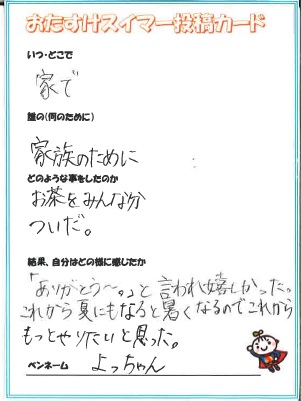 おたすけスイマー投稿カード
いつ・どこで
家で
誰の(何のために)
家族のために
どのような事をしたのか
お茶をみんな分
ついだ。
結果、自分はどの様に感じたか
「ありがとう〜。」と言われ嬉しかった。
これから夏にもなると暑くなるのでこれから
もっとやりたいと思った。
ペンネーム よっちゃん